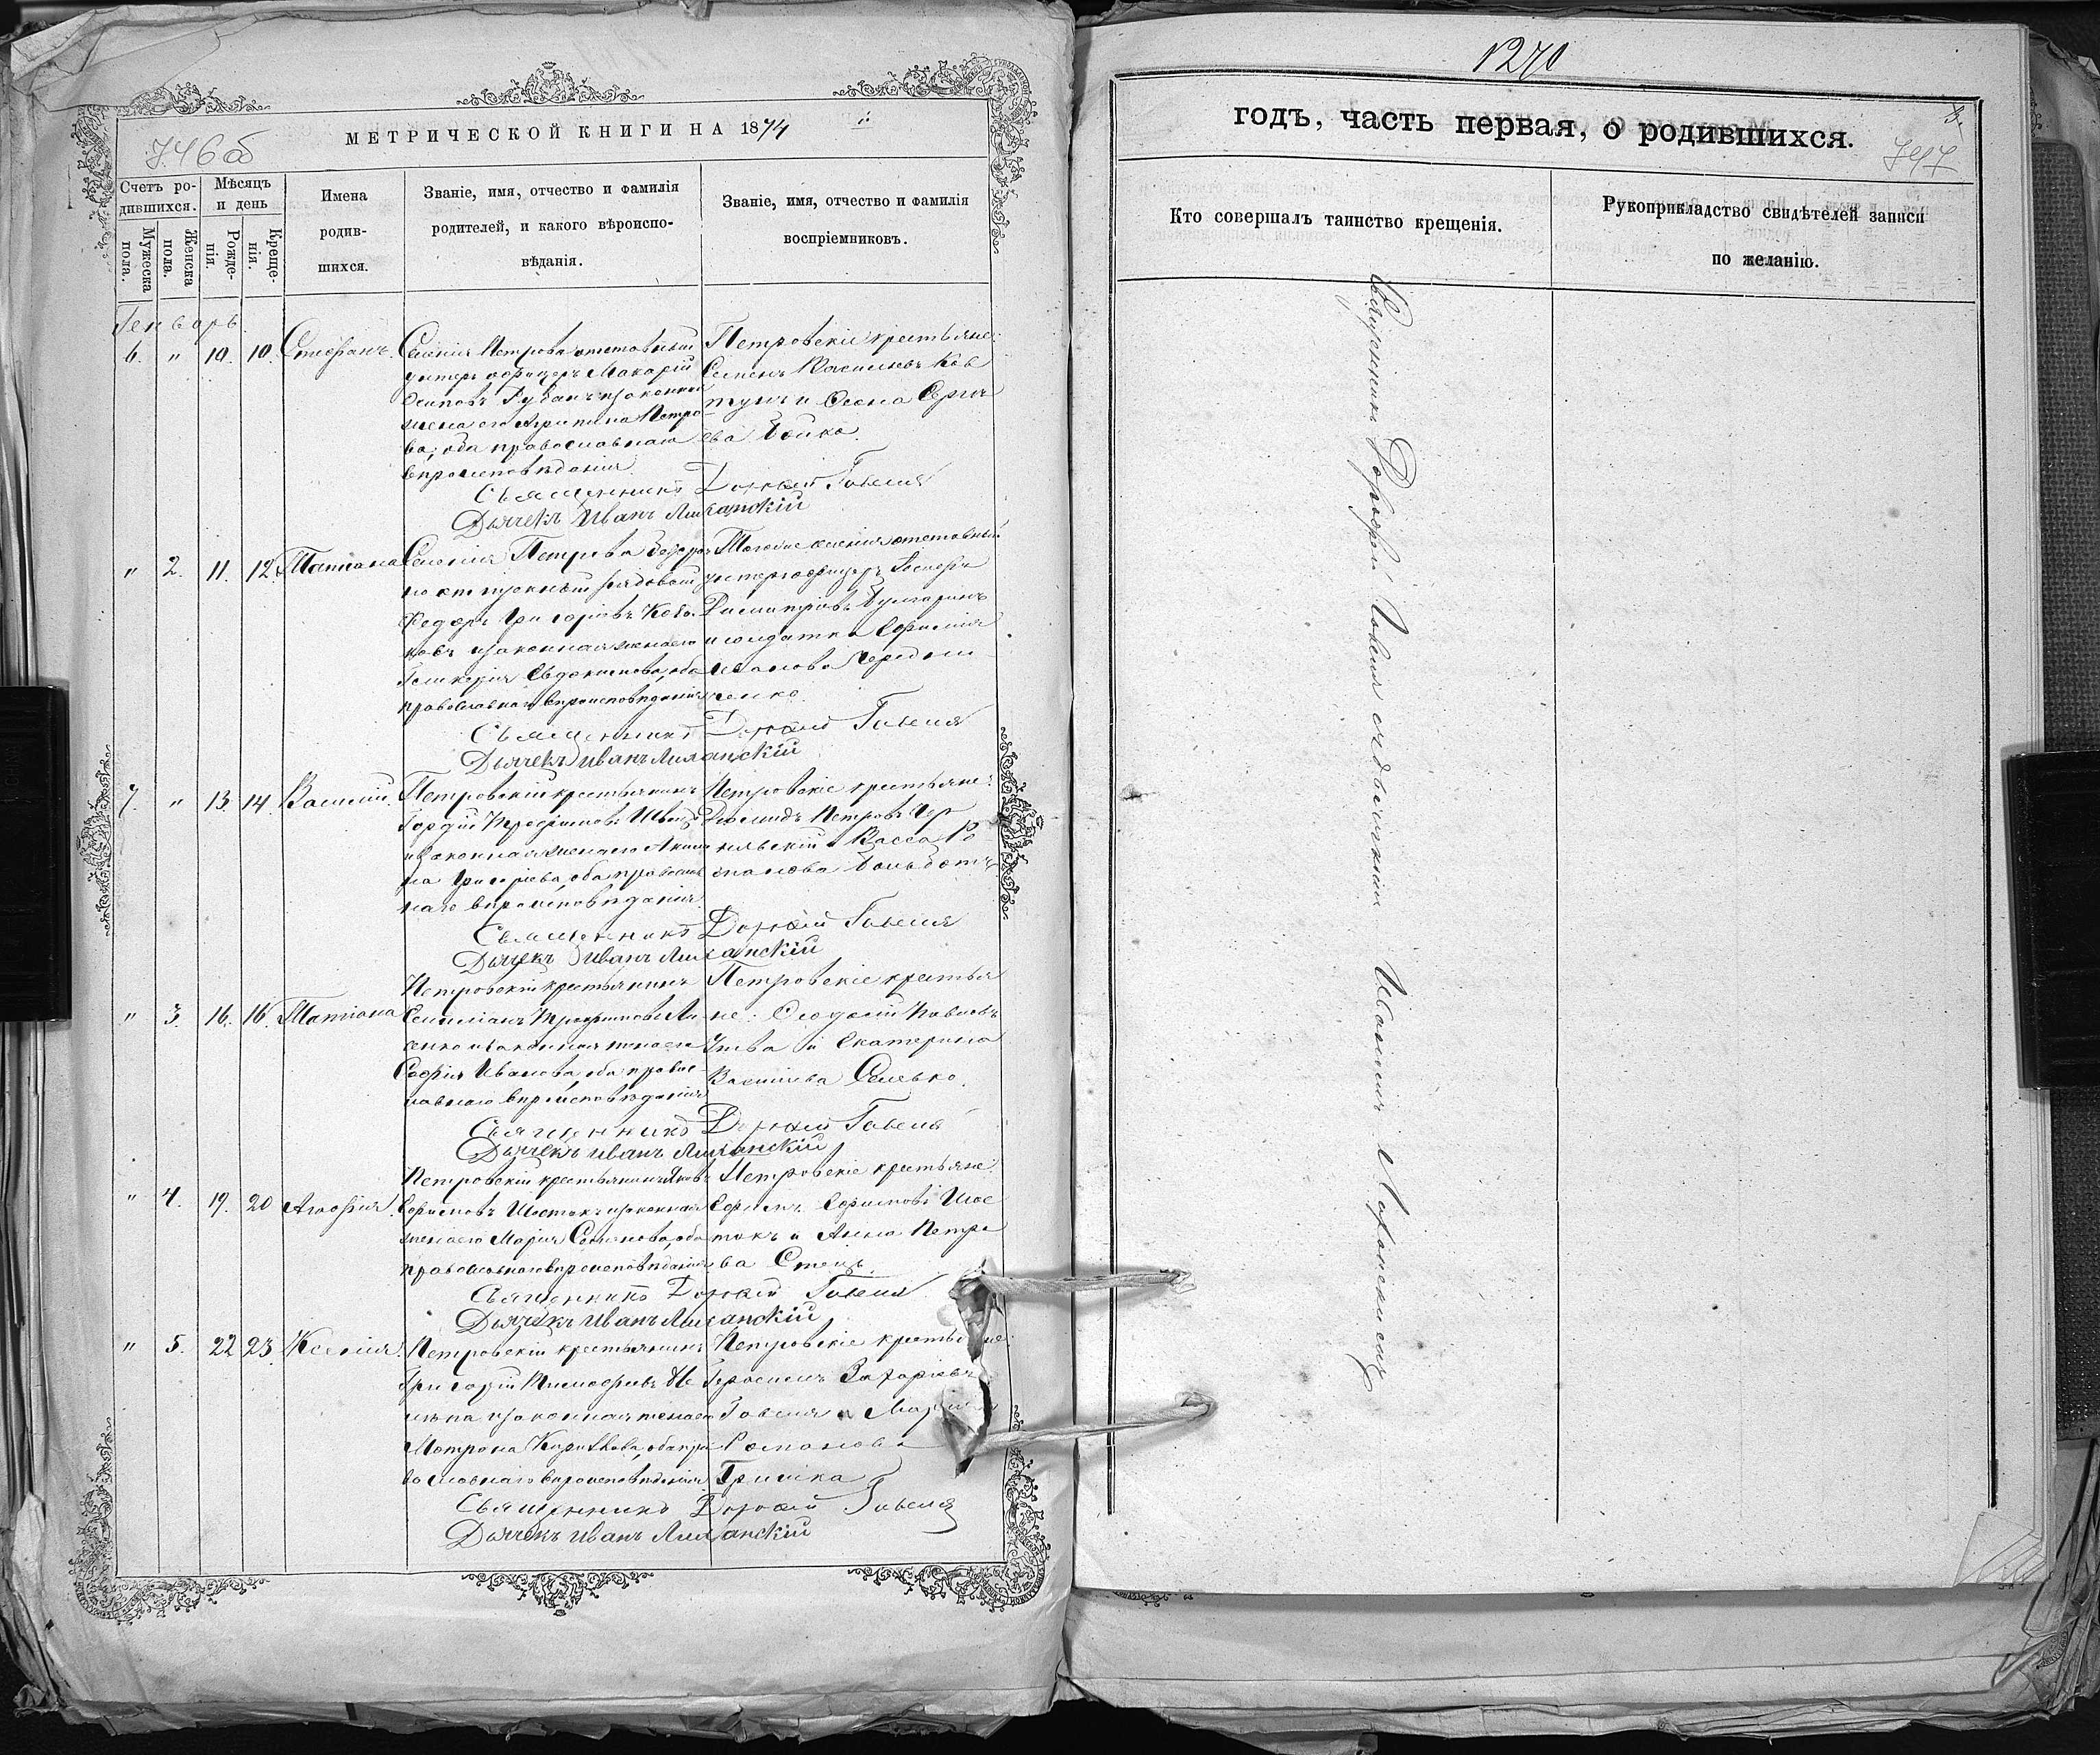 МЕТРИЧЕСКОЙ КНИГИ НА 1874
746об
Счетъ ро-
дившихся.
Мужеска
пола.
Женска
пола.
Мѣсяцъ
и день
Рожде-
нія.
Креще-
нія.
Имена
родив-
шихся.
Званіе, имя, отчество и фамилія
родителей, и какого вѣроиспо-
вѣданія.
Званіе, имя, отчество и фамилія
воспріемниковъ.
Генварь
6. " 10. 10. Стефанъ.
Селенія Петрова отставный
унтеръ офицеръ Макарій
Осиповъ Губанъ и законная
жена его Агрипина Петро
ва, оба православнаго
вѣроисповѣданія
Петровскіе крестьяне:
Семенъ Васильевъ Ков
тунъ и Сергѣ
ева Бойко.
Священникъ Дорофей Говеля
Дьячекъ Иванъ
" 2. 11. 12. Татіана
Селенія Петрова безсроч
но отпускный рядовой
Федоръ Григоріевъ
и законная жена его
Гликерія Евдокимова, оба
православнаго вѣроисповѣданія
Того же селенія отставный
унтеръ офицеръ
Димитріевъ Булгаринъ
и солдатка Евфимія
Иванова Чередни
ченко.
Священникъ Дорофей Говеля
Дьячекъ Иванъ
7. " 13. 14. Василій.
Петровскій крестьянинъ
Гордій Трофимовъ Швецъ
и законная жена его Акили
на Григоріева, оба православ
наго вѣроисповѣданія
Петровскіе крестьяне:
Діомидъ Петровъ Чер
нявскій и Васса Ро
манова
Священникъ Дорофей Говеля
Дьячекъ Иванъ
" 3. 16. 16. Татіана
Петровскій крестьянинъ
Емиліанъ Трофимовъ Лы
сенко и законная жена его
Софія Иванова, оба правос
лавнаго вѣроисповѣданія
Петровскіе крестья
не: Феодосій Павловъ
и Екатерина
Васильева
Священникъ Дорофей Говеля
Дьячекъ Иванъ
" 4. 19. 20 Агафія.
Петровскій крестьянинъ Яковъ
Ефимовъ Шостакъ и законная
жена его Марія Семенова, оба
православнаго вѣроисповѣданія
Петровскіе крестьяне:
Ефимъ Ефимовъ Шос
такъ и Анна Петро
ва Стецъ.
Священникъ Дорофей Говеля
Дьячекъ Иванъ
" 5. 22 23. Ксенія.
Петровскій крестьянинъ
Григорій Тимофеевъ Не
и законная жена его
Мотрона Кирилова, оба пра
вославнаго вѣроисповѣданія
Петровскіе крестьяне:
Герасимъ Захаріевъ
Говеля и Марія
Романова
Гришка
Священникъ Дорофей Говеля
Дьячекъ Иванъ
1270
годъ, часть первая, о родившихся.
747
Кто совершалъ таинство крещенія.
Рукоприкладство свидѣтелей записи
по желанію.
Священникъ Дорофей Говеля съ дьячкомъ Иваномъ